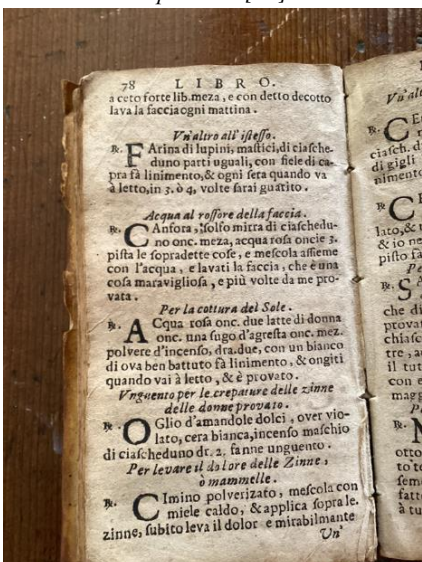 78 LIBRO.
a ceto forte lib.meza, e con detto decotto
lava la facciaogni mattina.
Vn'altro all' istesso.
℞. FArina di lupini, mastici,di ciasche-
duno parti uguali, con fiele di ca-
pra fà linimento, & ogni sera quando va
à letto,in 3. ò 4, volte sarai guarito.
Acqua al rossore della faccia.
℞. CAnfora, solfo mirra di ciaschedu-
no onc. meza, acqua rosa oncie 3.
pista le sopradette cose, e mescola assieme
con l'acqua, e lavati la faccia, che è una
cosa maravigliosa, e più volte da me pro-
vata.
Per la cottura del Sole.
℞. ACqua rosa onc. due latte di donna
onc. una sugo d'agresta onc. mez.
polvere d'incenso, dra.due, con un bianco
di ova ben battuto fà linimento, & ongiti
quando vai à letto, & è provato.
Vnguento per le crepature delle zinne
delle donne provato.
℞. OGlio d'amandole dolci, over vio-
lato, cera bianca,incenso maschio
di ciascheduno dr. 2. fanne unguento.
Per levare il dolore delle Zinne,
ò mammelle.
℞. CImino polverizato, mescola con
miele caldo, & applica sopra le
zinne, subito leva il dolor e mirabilmante
Un'